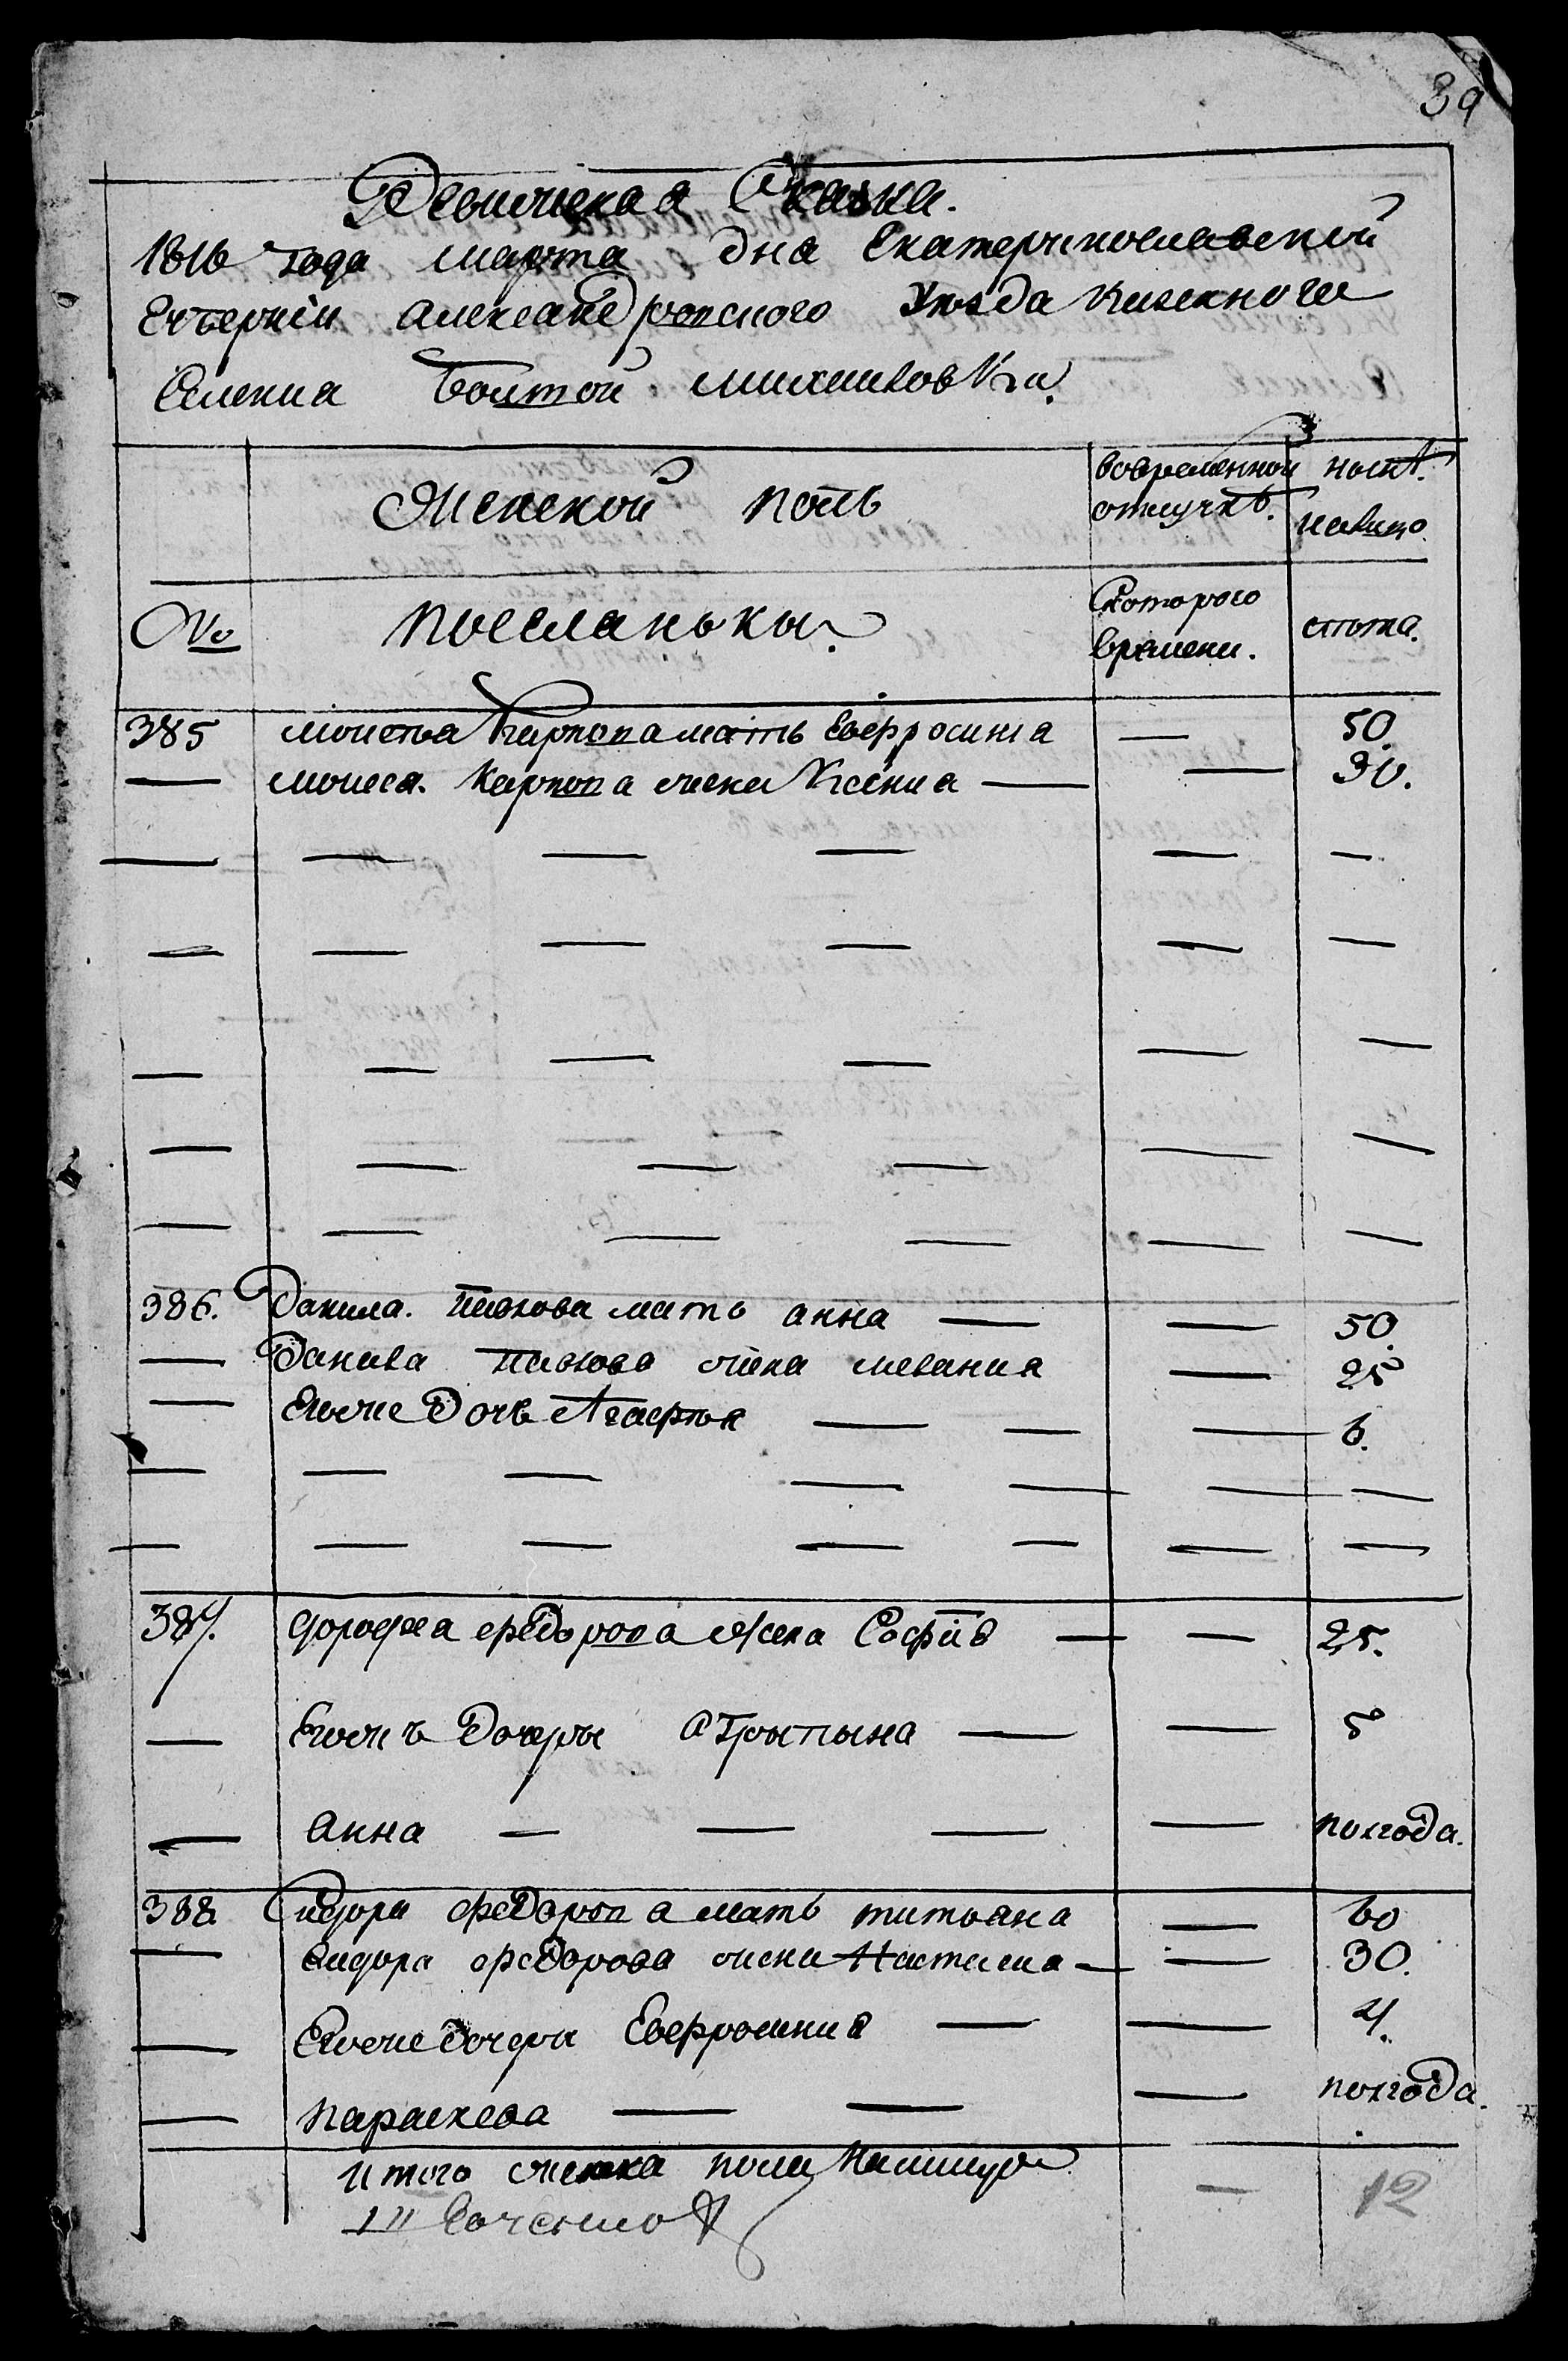 39
Ревижская Скаска.
1816 года марта дня Екатеринославской
Губерніи александровского Уезда Казенного
Селения Болшой михайловки.
Женской полъ вовременной ныне.
отлучке. налицо.
№ поселаньки. Скоторого лета.
времени.
385 моисея Карпова мать Евфросиния — 50.
— моисея. Карпова жена Ксения — — 30.
— — — — — —
— — — — — —
— — — — — —
— — — — — —
— — — — — —
386. Данила. павлова мать анна — — 50.
— Данила павлова жена мелания — 25
— Егоже Дочь Агафья — — — 6.
— — — — — — —
— — — — — — —
387. дорофея федорова жена Софія — — 25.
— Егожъ Дочеры агрыпына — — 5
— анна — — — — полгода.
388. Сидора федорова мать титьяна — 60
— Сидора федорова жена Настасия — — 30.
— Егоже дочеры Евфросиния — — 4.
— параскева — — — полгода.
итого женска пола налицо — 12